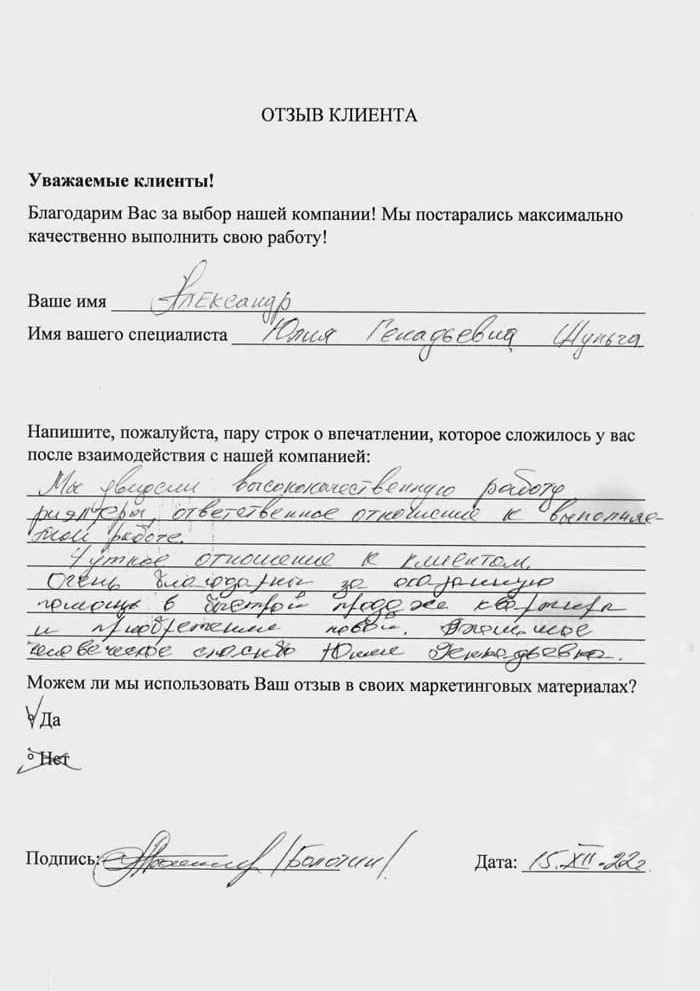 ОТЗЫВ КЛИЕНТА
Уважаемые клиенты!
Благодарим Вас за выбор нашей компании! Мы постарались максимально
качественно выполнить свою работу!
Ваше имя Александр
Имя вашего специалиста Юлия Генадьевна Шульга
Напишите, пожалуйста, пару строк о впечатлении, которое сложилось у вас
после взаимодействия с нашей компанией:
Мы увидели высококачественную работу
ответственное отношение к выполняе-
мой работе.
Чуткое отношение к клиентом.
Очень благодарны за оказанную
помощь в быстрой продаже квартиры
и приобретение новой. Огромное
человеческое спасибо Юлии Геннадьевне.
Можем ли мы использовать Ваш отзыв в своих маркетинговых материалах?
Да
Нет
Подпись: /Болотин/
Дата: 15.XII.22г.